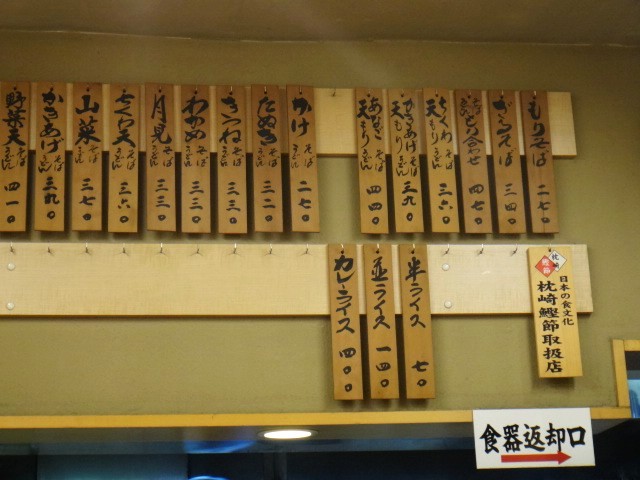 もりそば 二七〇
ざるそば 三四〇
合せ 四七〇
ちくわ天もり そば うどん 三六〇
かきあげ天もり そば うどん 三九〇
あなご天もり そば うどん 四四〇
かけ そば うどん 二七〇
たぬき そば うどん 三二〇
きつね そば うどん 三三〇
わかめ そば うどん 三三〇
月見 そば うどん 三三〇
ちくわ天 そば うどん 三六〇
山菜 そば うどん 三七〇
かきあげ そば うどん 三九〇
野菜天 そば うどん 四一〇
枕崎
鰹節
日本の食文化
枕崎鰹節取扱店
半ライス 七〇
並ライス 一四〇
カレーライス 四〇〇
食器返却口